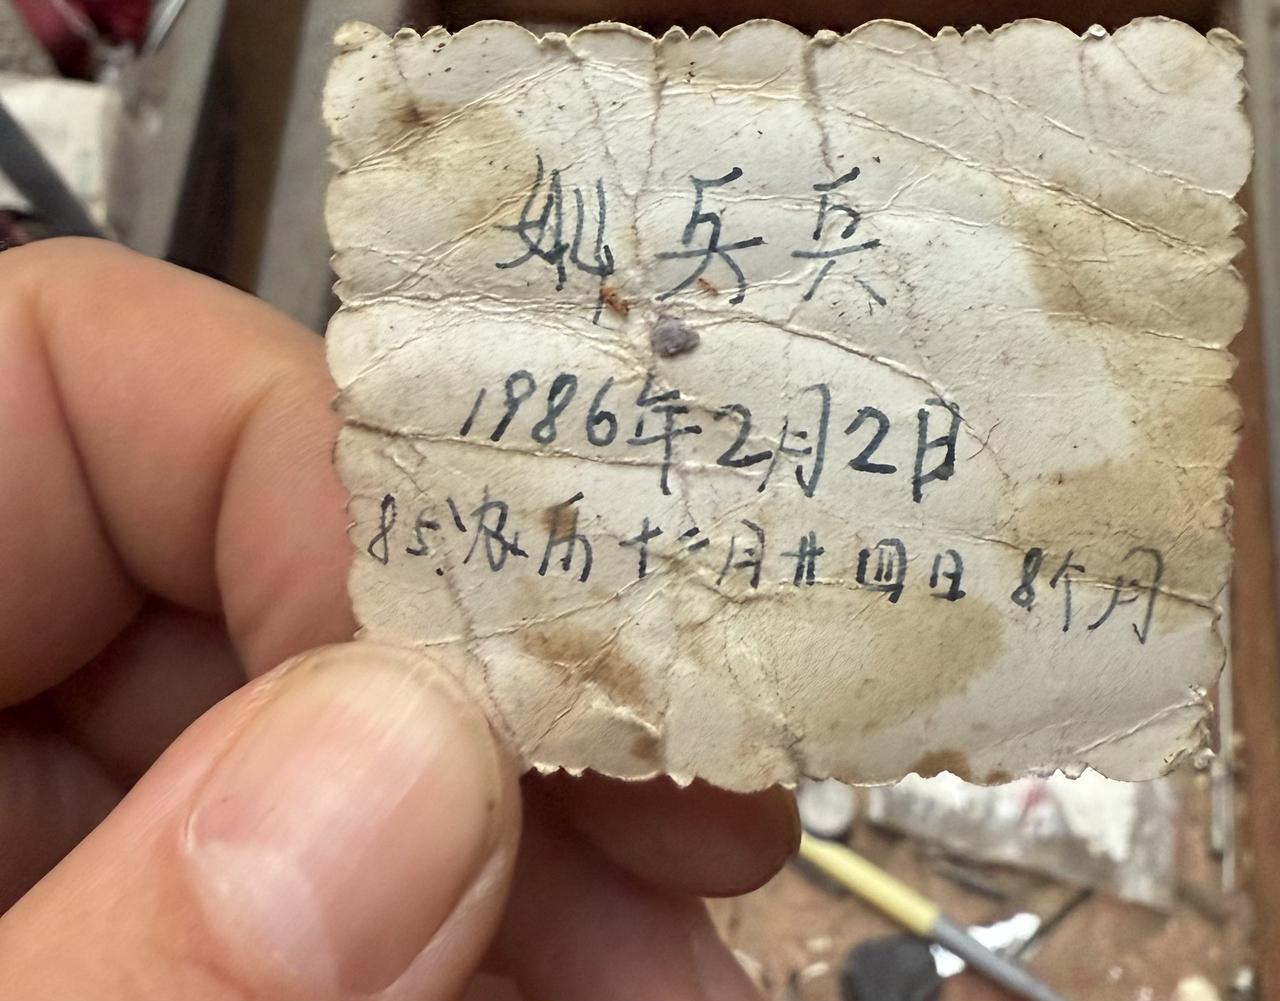 兵兵
1986年2月2日
85.农历十二月廿四日 8个月